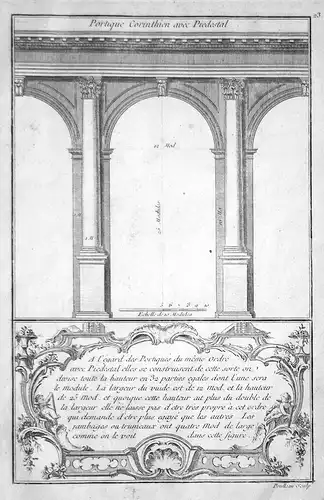 Portique Corinthien avec Piedestal
12 Mod
25 Modules
2 M
Echelle de 10 Modules
A l'egard des Portiques du même Ordre
avec Piedestal elles se construisent de cette sorte on
divise toute la hauteur en 32 parties egales dont l'une sera
le module. La largeur du vuide est de 12 mod. et la hauteur
de 25 mod. et quoique cette hauteur ait plus du double de
la largeur elle ne laisse pas d'etre tres propre à cet ordre
qui demande d'etre plus égayé que les autres. Les
jambages ou trumeaux ont quatre Mod de large
comme on le voit dans cette figure.